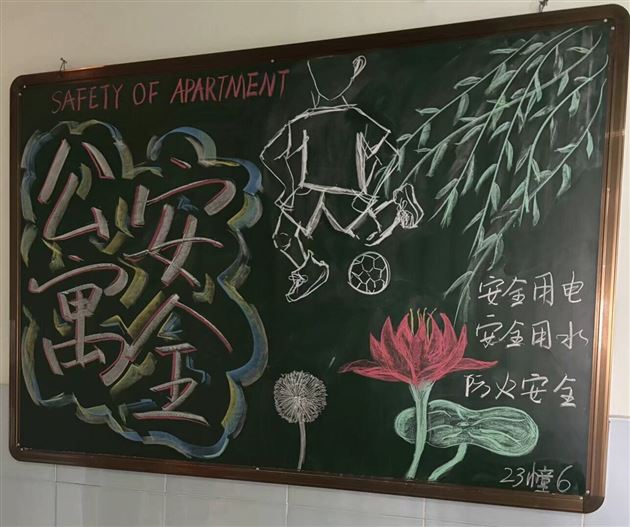 SAFETY OF APARTMENT
公寓
安全
安全用电
安全用水
防火安全
23幢6